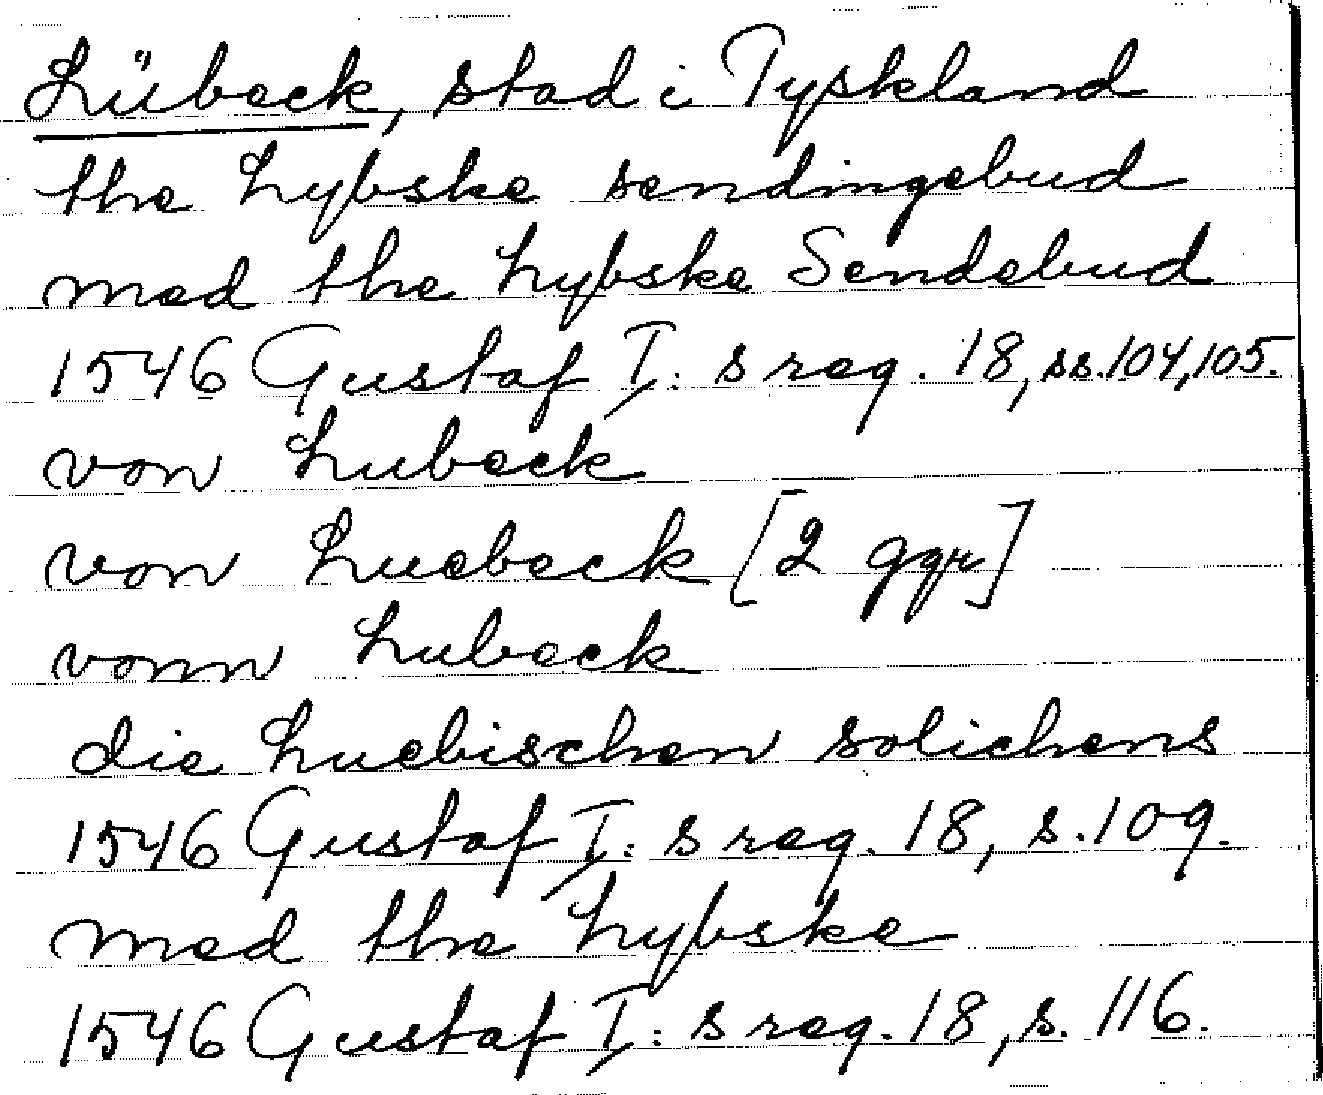 Lübeck, stad i Tyskland
the Lybske sendingebud
med the Lybske Sendebud
1546 Gustaf I: s reg. 18, ss. 104, 105.
von Lubeck
von Luebeck [2 ggr]
vonn Lubeck
die Luebischen solichens
1546 Gustaf I: s reg. 18, s. 109.
med the Lybske
1546 Gustaf I: s reg. 18, s. 116.